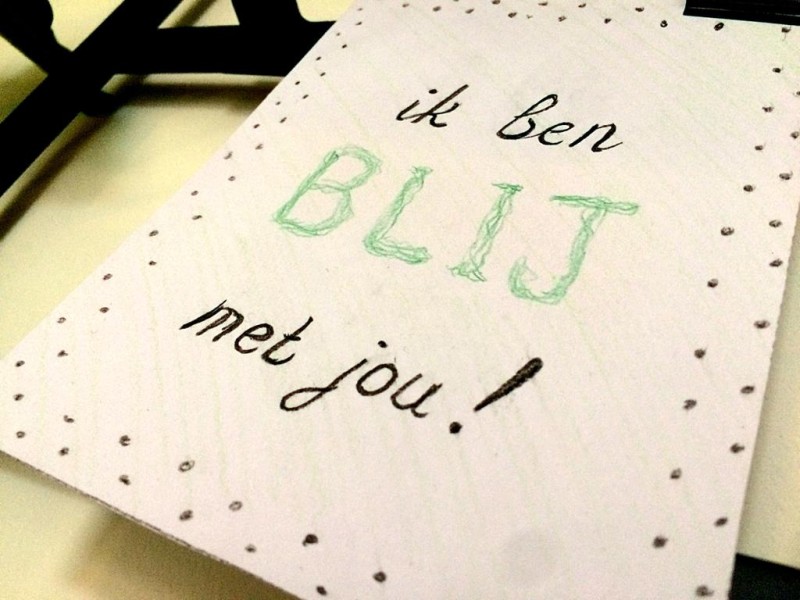 ik ben
BLIJ
met jou!